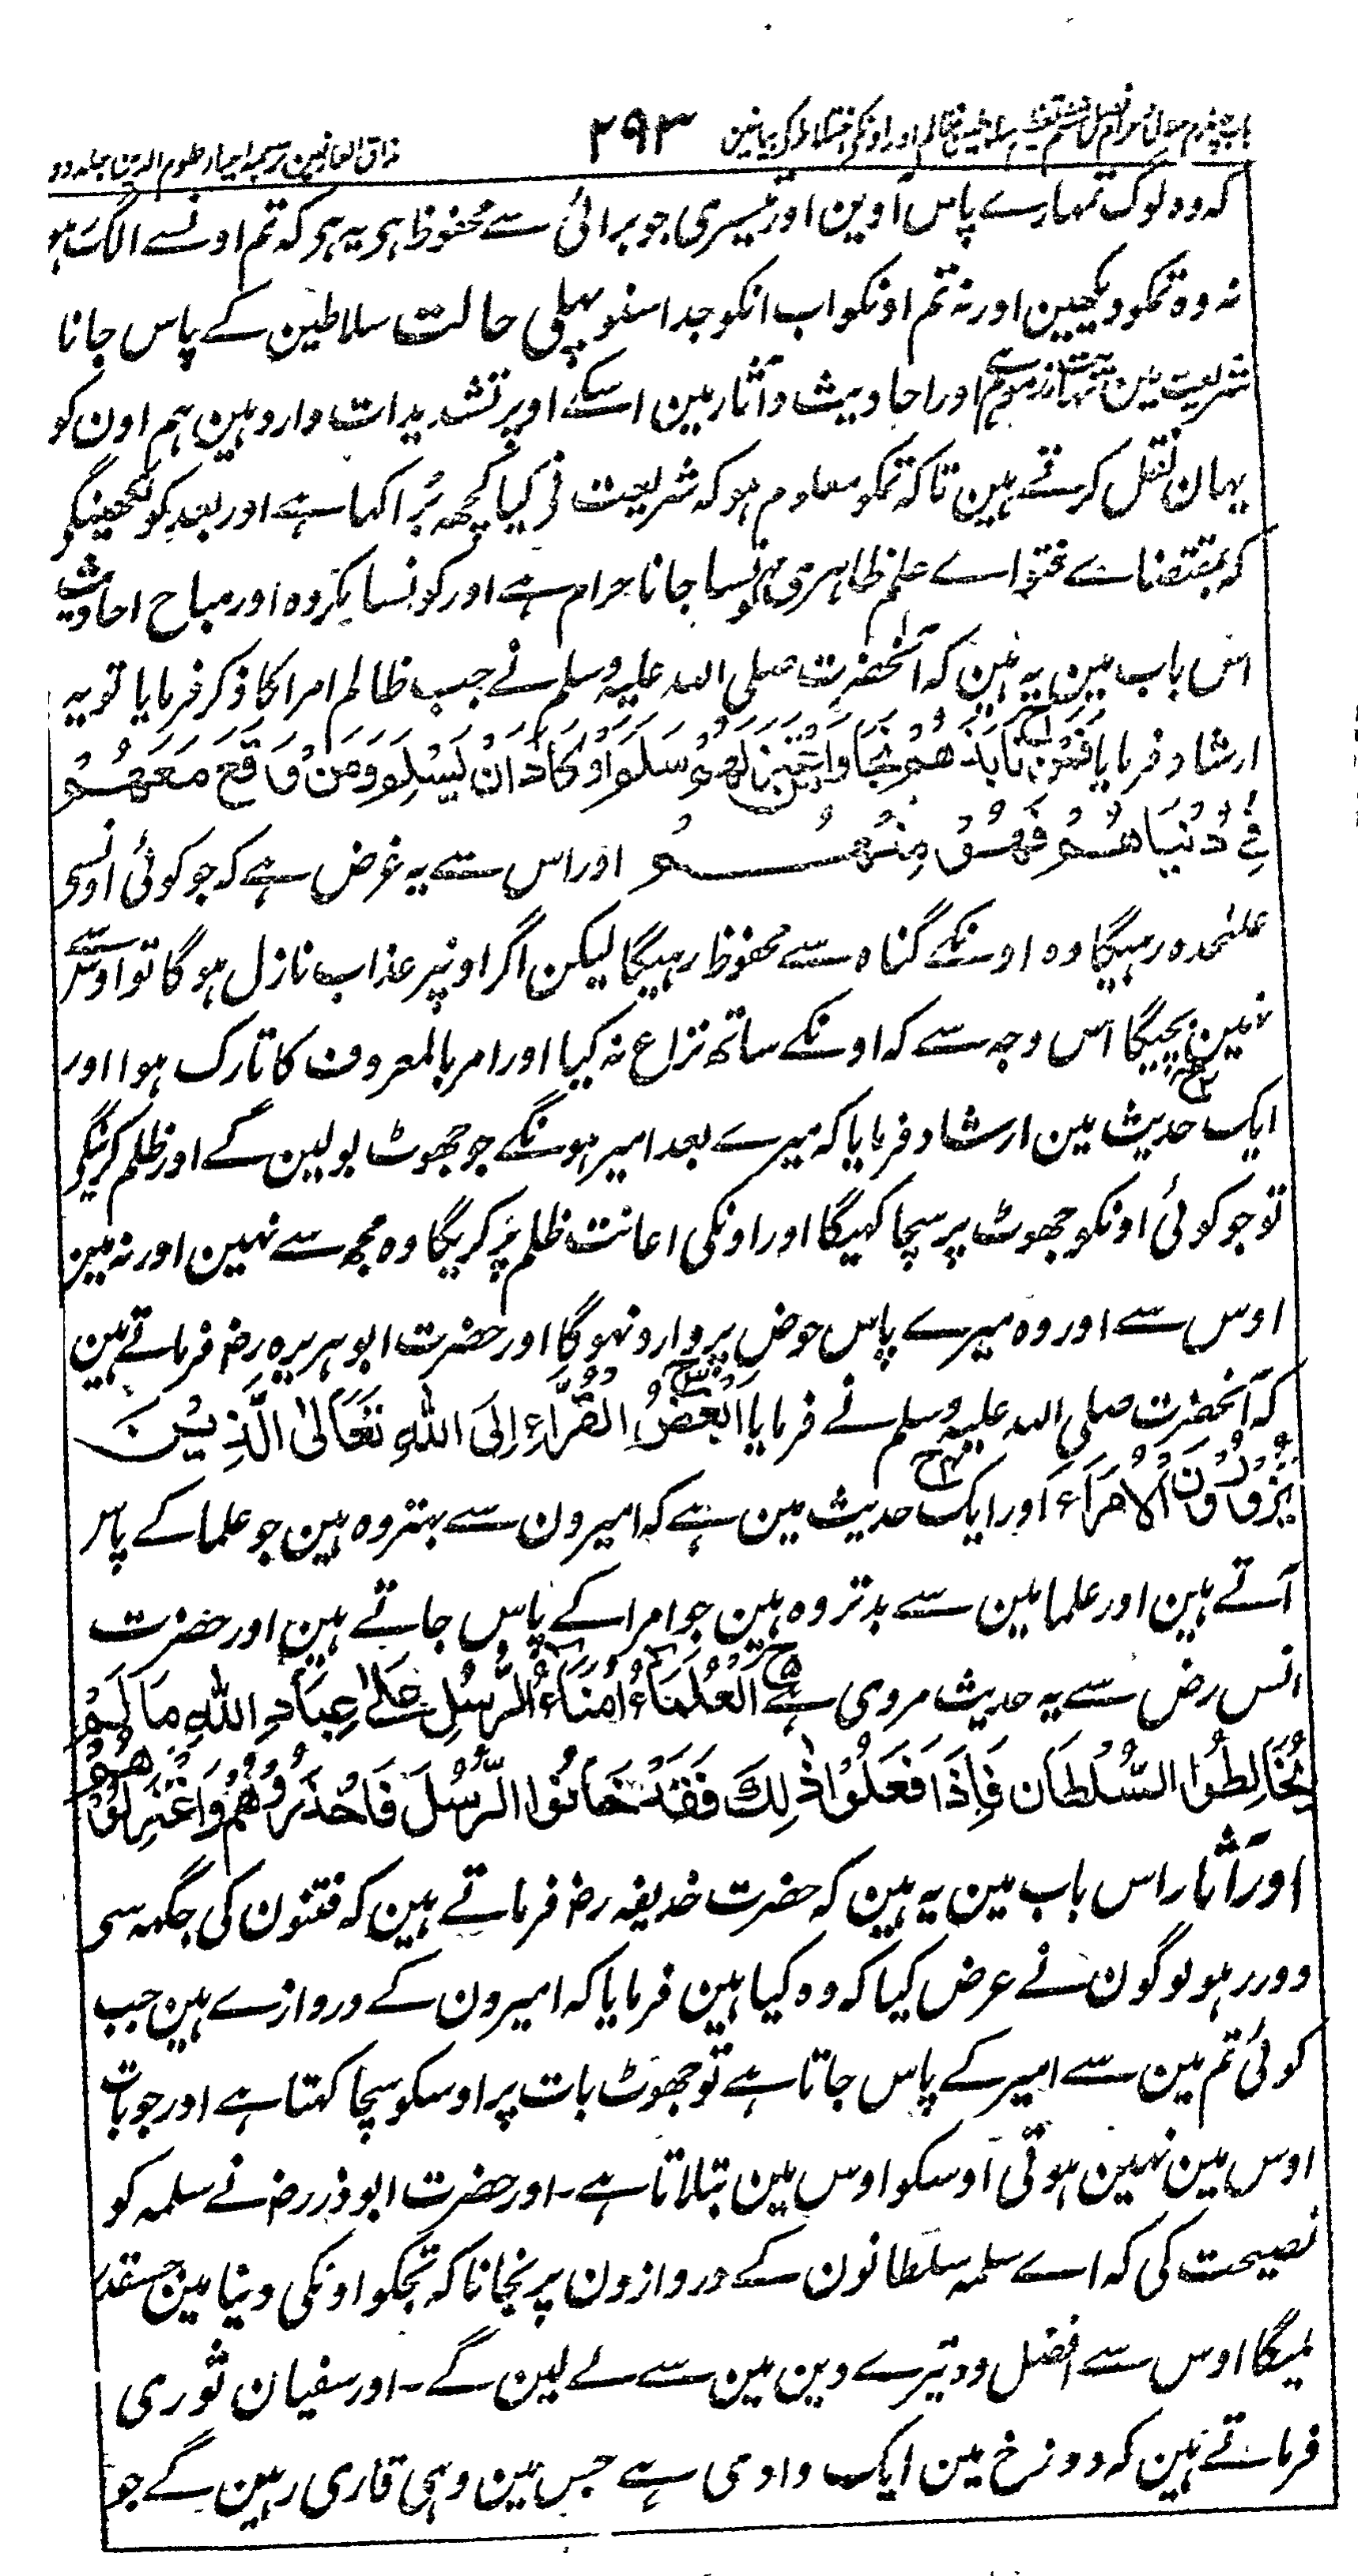 ۲۹۳ مذاق العارفین ترجمہ احیاء علوم الدین جلد دو
کہ وہ لوگ تمہارے پاس آوین اور تیسری جو برائی سے محفوظ ہی یہ ہی کہ تم اونسے الگ ہو
نہ وہ تمکو دیکھین اور نہ تم اونکو اب انکو جدا سنو پہلی حالت سلاطین کے پاس جانا
شریعت مین نہایت مذموم ہے اور احادیث و آثار مین اسکے اوپر تشدیدات وارد ہین ہم اون کو
یہان نقل کرتے ہین تاکہ تمکو معلوم ہو کہ شریعت نی کیا کچھہ بُرا کہا ہے اور بعد کو لکھینگے
کہ بمقتضاے فتواے علم ظاہری کونسا جانا حرام ہے اور کونسا مکروہ اور مباح احادیث
اس باب مین یہ ہین کہ آنحضرت صلی اللہ علیہ وسلم نے جب ظالم امرا کا ذکر فرمایا تو یہ
ارشاد فرمایا فَمَنْ نَابَذَهُمْ نَجَا وَاعْتَزَلَهُمْ سَلِمَ اَوْ كَادَ اَنْ يَسْلِمَ وَمَنْ وَقَعَ مَعَهُمْ
فِيْ دُنْيَاهُمْ فَهُوَ مِنْهُمْ اور اس سے یہ غرض ہے کہ جو کوئی اونسی
علٰحدہ رہیگا وہ اونکے گناہ سے محفوظ رہیگا لیکن اگر اونپر عذاب نازل ہوگا تو اوس سے
نہین بچیگا اس وجہ سے کہ اونکے ساتھ نزاع نہ کیا اور امر بالمعروف کا تارک ہوا اور
ایک حدیث مین ارشاد فرمایا کہ میرے بعد امیر ہونگے جو جھوٹ بولین گے اور ظلم کرینگے
تو جو کوئی اونکو جھوٹ پر سچا کہیگا اور اونکی اعانت ظلم پر کریگا وہ مجھ سے نہین اور نہ مین
اوس سے اور وہ میرے پاس حوض پر وارد نہوگا اور حضرت ابو ہریرہ رض فرماتے ہین
کہ آنحضرت صلی اللہ علیہ وسلم نے فرمایا اَبْغَضُ الْقُرَّاءِ اِلَى اللّٰهِ تَعَالٰى الَّذِيْنَ
يَزُوْرُوْنَ الْاُمَرَاءَ اور ایک حدیث مین ہے کہ امیرون سے بہتر وہ ہین جو علما کے پاس
آتے ہین اور علما مین سے بدتر وہ ہین جو امرا کے پاس جاتے ہین اور حضرت
انس رض سے یہ حدیث مروی ہے اَلْعُلَمَاءُ اُمَنَاءُ الرُّسُلِ عَلٰى عِبَادِ اللّٰهِ مَا لَمْ
يُخَالِطُوا السُّلْطَانَ فَاِذَا فَعَلُوْا ذٰلِكَ فَقَدْ خَانُوا الرُّسُلَ فَاحْذَرُوْهُمْ وَاعْتَزِلُوْهُمْ
اور آثار اس باب مین یہ ہین کہ حضرت حذیفہ رض فرماتے ہین کہ فتنون کی جگہہ سی
دور رہو لوگون نے عرض کیا کہ وہ کیا ہین فرمایا کہ امیرون کے دروازے ہین جب
کوئی تم مین سے امیر کے پاس جاتا ہے تو جھوٹ بات پر اوسکو سچا کہتا ہے اور جو بات
اوس مین نہین ہوتی اوسکو اوس مین بتلاتا ہے۔ اور حضرت ابوذر رض نے سلمہ کو
نصیحت کی کہ اے سلمہ سلطانون کے دروازون پر نجانا کہ تجکو اونکی دنیا مین جسقدر
لمیگا اوس سے افضل وہ تیرے دین مین سے لے لین گے۔ اور سفیان ثوری
فرماتے ہین کہ دوزخ مین ایک وادی ہے جس مین وہی قاری رہین گے جو